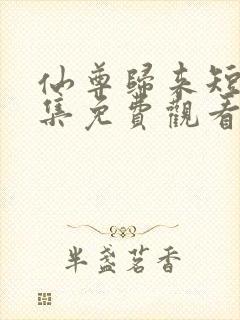 仙尊歸來短
集免費觀看
半盞茗香